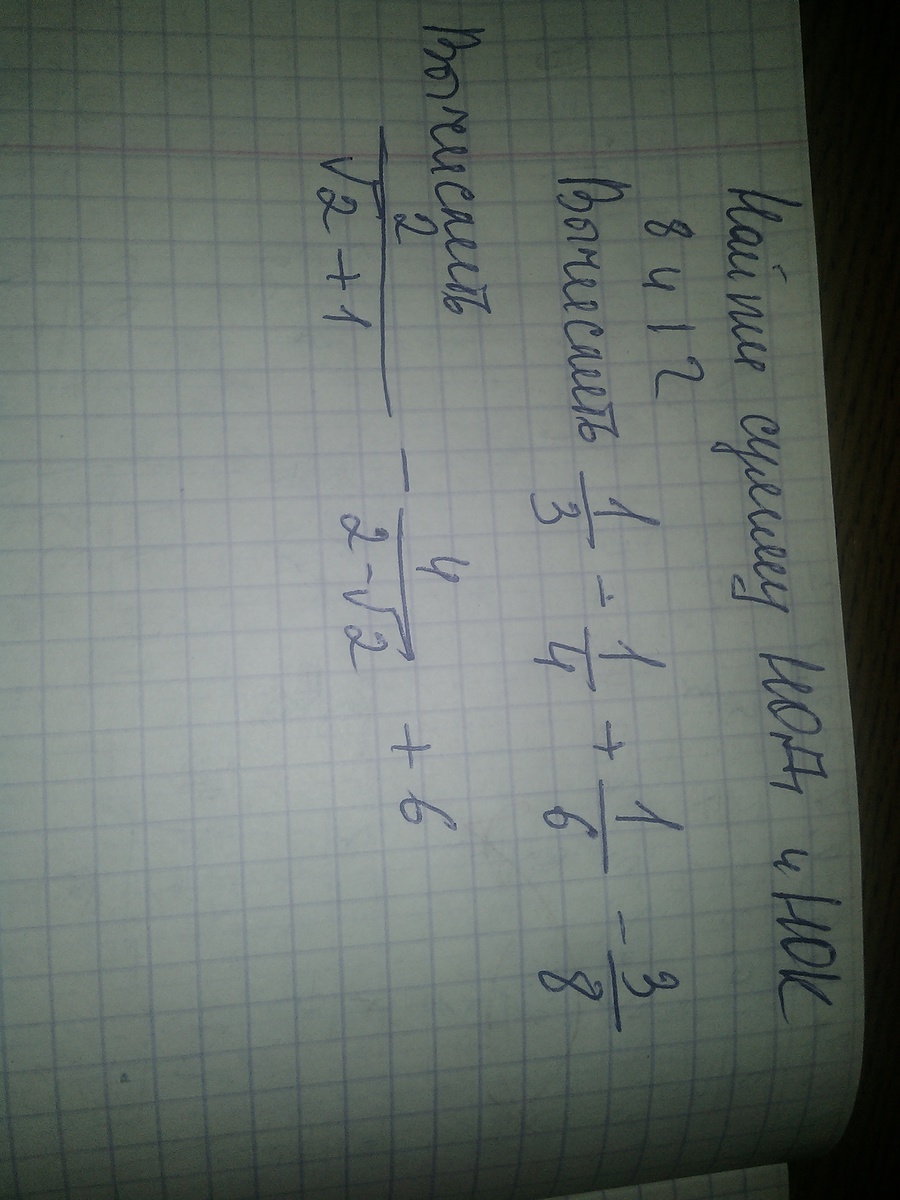 Найти сумму НОД и НОК
8 и 12
Вычислить 1/3 - 1/4 + 1/6 - 3/8
Вычислить
2/(√2 + 1) - 4/(2-√2) + 6